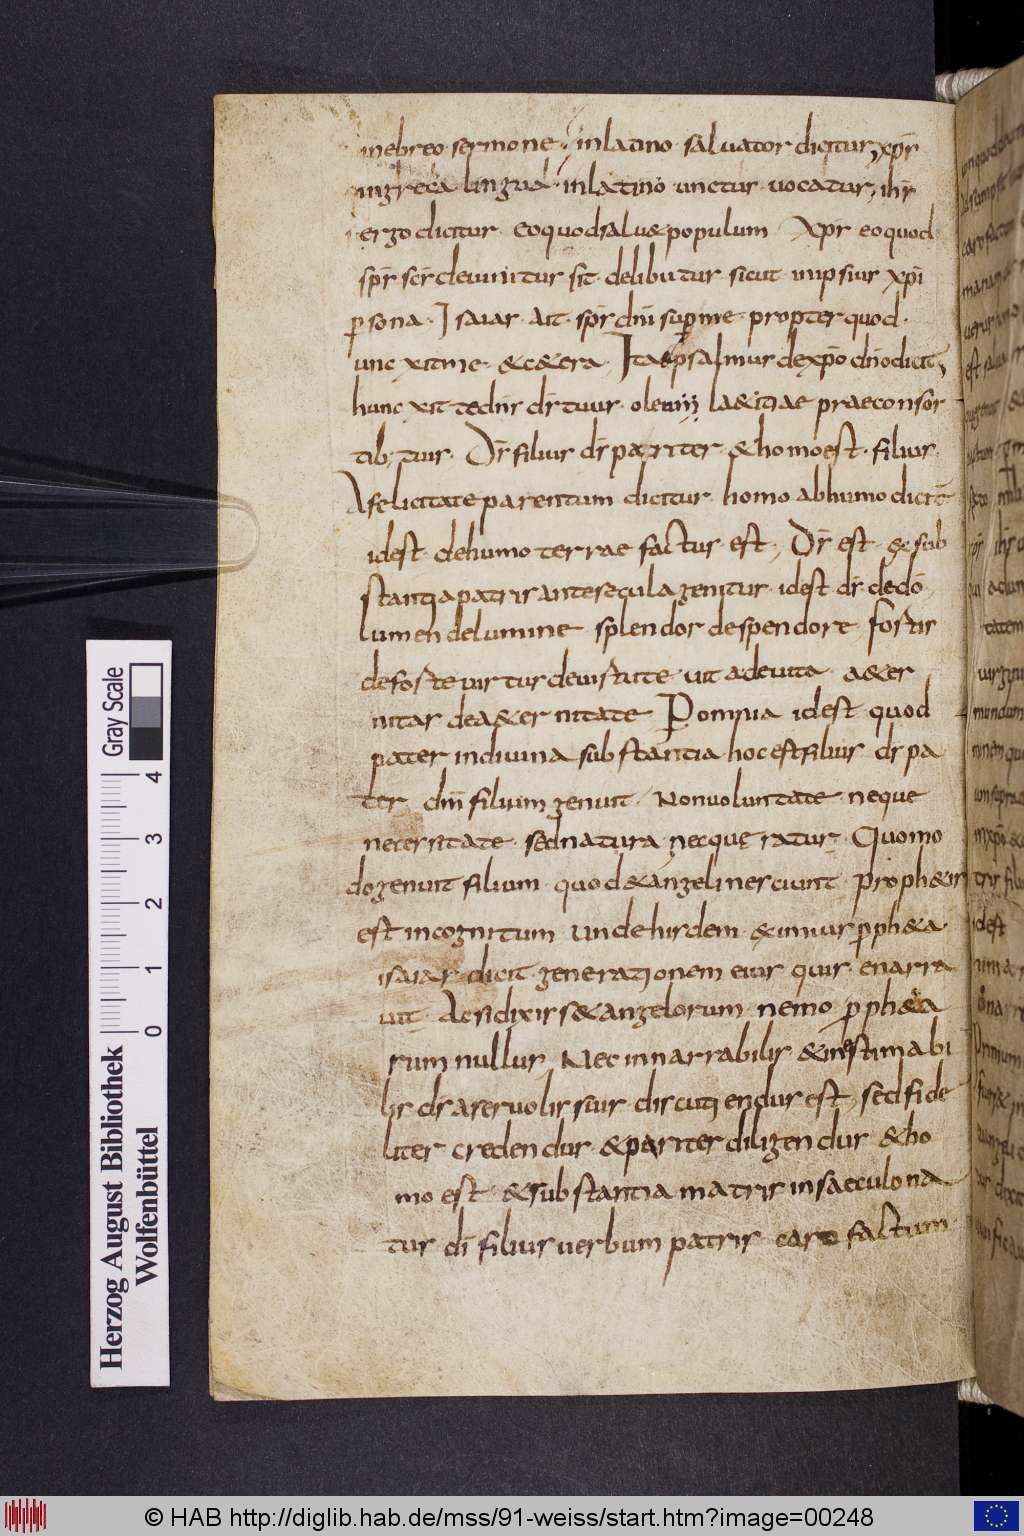 in ebreo sermone; in latino saluator dicitur; xp̄s
in greca lingua in latino unctus uocatur; ih̄s
ergo dicitur eo quod saluæ populum Xp̄s eo quod
sp̄s sc̄s
sit delibutur sicut in ipsius xp̄i
p̱sona. Isaias ait. sp̄s dn̄i sup̱ me propter quod
unc xit me &c&era, Ita & psalmus de xp̄o dn̄o dicit;
hunc xit te dn̄s ds̄ tuus oleum la&itiae prae consor
tib; tuis. Ds̄ filius ds̄ pariter & homo est. filius
A felicitate parentum dicitur homo ab humo dicit̄
id est de humo terrae factus est; Ds̄ est & sub
stantia patris ante secula genitus id est ds̄ de dō
lumen de lumine splendor de spendore fortis
de forte uirtus de uirtute uita de uita a&er
nitas de a&ernitate P omnia id est quod
pater in diuina substantia hoc est filius ds̄ pa
ter dn̄i filium genuit. Non uoluntate neque
necessitate sed natura necque
Quomo
do genuit filium quod & angeli nesciunt proph&is
est incognitum unde hisdem eximius p̱ph&a
isaias dicit generationem eius quis enarra
uit. Ac si dixiss& angelorum nemo p̱ph&a
rum nullus, Nec innarrabilis & inestimabi
lis ds̄ a seruolis suis discutiendus est, sed fide
liter credendus & pariter diligendus & ho
mo est & substantia matris in saeculo na
tus dī filius uerbum patris caro factum
Herzog August Bibliothek
Wolfenbüttel
0 1 2 3 4
Gray Scale
© HAB http://diglib.hab.de/mss/91-weiss/start.htm?image=00248